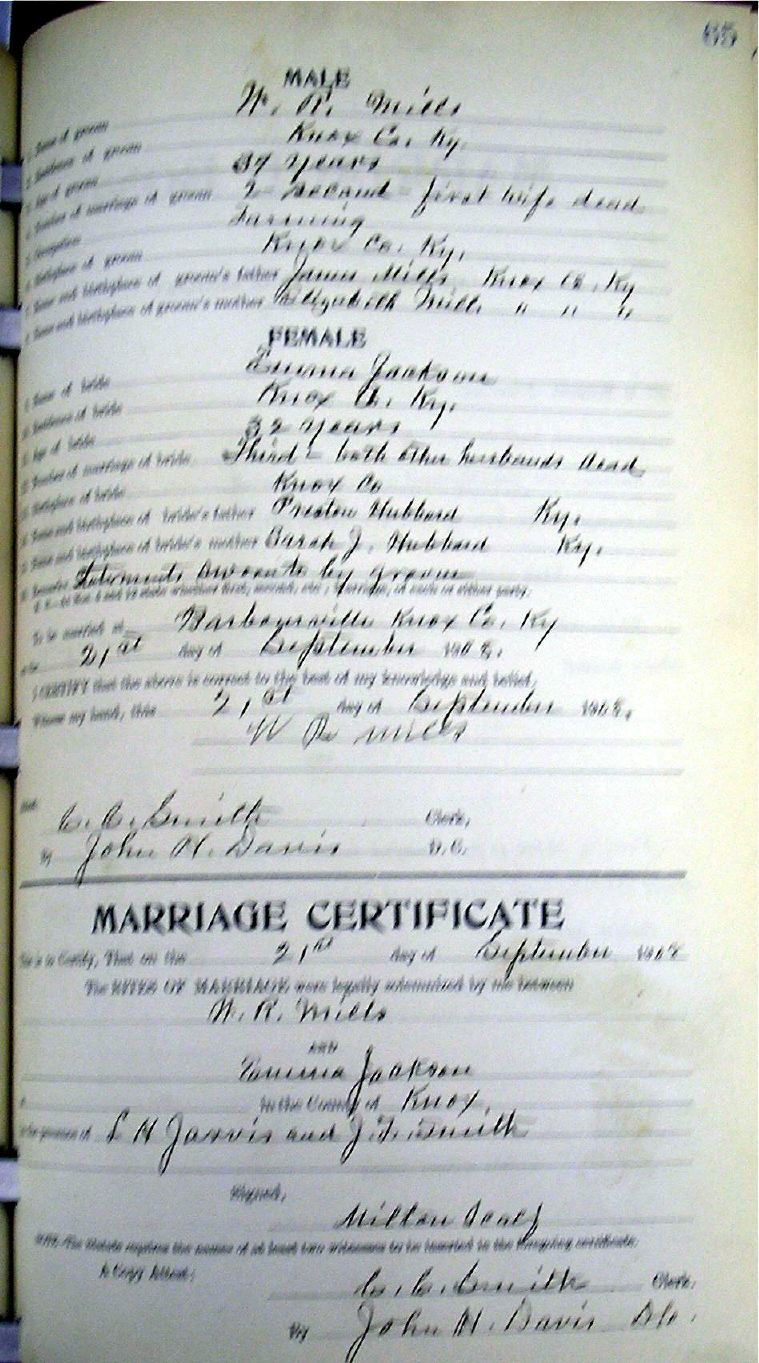 65
MALE
1. Name of groom W. R. Mills
2. Residence of groom Knox Co. Ky.
3. Age of groom 37 years
4. Number of marriage of groom 2 - second - first wife dead
5. Occupation Farming
6. Birthplace of groom Knox Co. Ky.
7. Name and birthplace of groom's father James Mills Knox Co. Ky
8. Name and birthplace of groom's mother Elizabeth Mills " " "
FEMALE
1. Name of bride Emma Jackson
2. Residence of bride Knox Co. Ky.
3. Age of bride 32 years
4. Number of marriage of bride Third - both other husbands dead
5. Birthplace of bride Knox Co
6. Name and birthplace of bride's father Preston Hubbard Ky.
7. Name and birthplace of bride's mother Sarah J. Hubbard Ky.
8. Remarks Statements sworn to by groom
To be married at Barbourville Knox Co. Ky
21st day of September 1908.
I CERTIFY that the above is correct to the best of my knowledge and belief.
Witness my hand, this 21st day of September 1908.
W R Mills
C. C. Smith Clerk,
By John H. Davis D. C.
MARRIAGE CERTIFICATE
This is to Certify, That on the 21st day of September 1908
The RITES OF MARRIAGE were legally solemnized by me between
W. R. Mills
AND
Emma Jackson
in the County of Knox,
in the presence of L H Jarvis and J. F. Smith
Signed,
Milton Scalf
NOTE.-The statute requires the names of at least two witnesses to be inserted in the foregoing certificate.
A Copy Attest:
C. C. Smith Clerk.
By John H. Davis D.C.